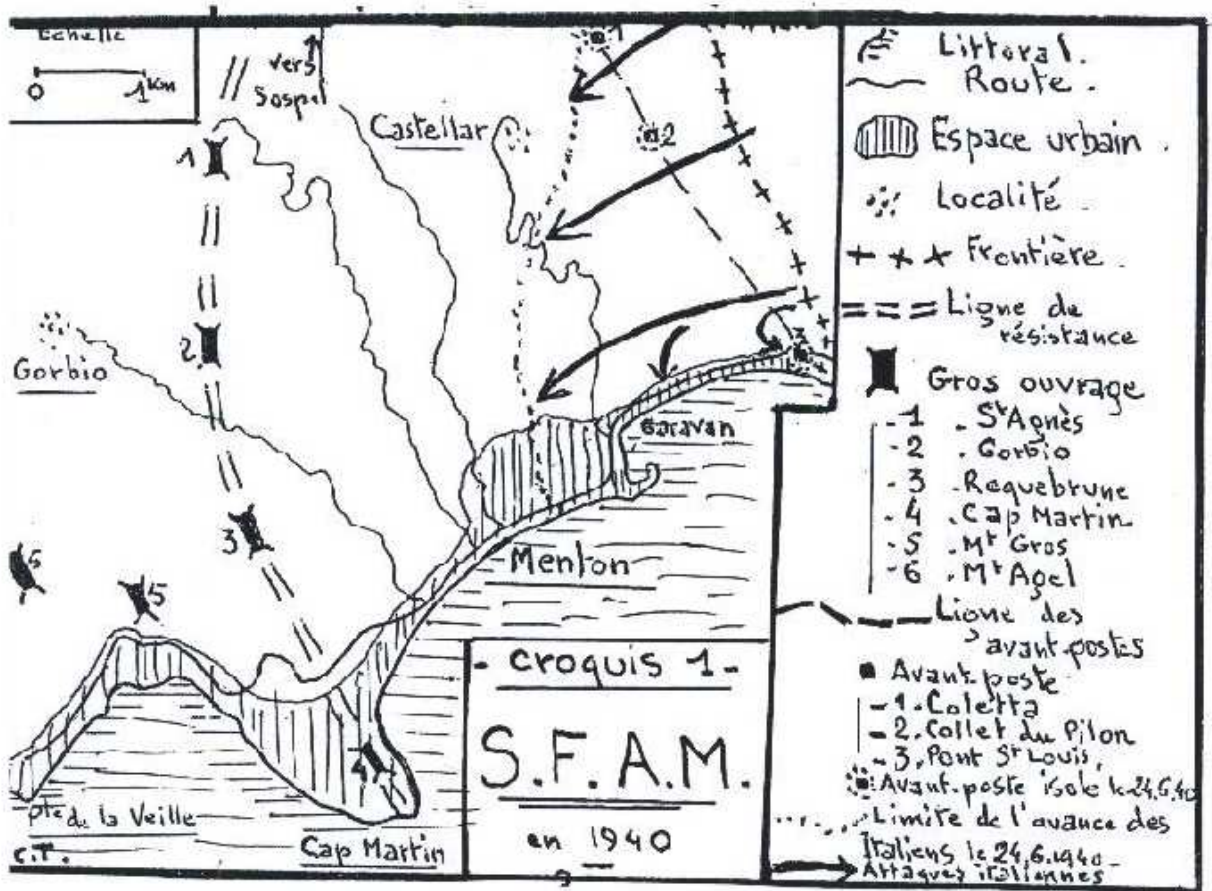 Echelle
0 1 km
vers
Sospel
Castellar
1
2
3
1
2
Gorbio
3
6
5
4
Garavan
Menton
Pte de la Veille
Cap Martin
C.T.
- Croquis 1 -
S.F.A.M.
en 1940
Littoral.
Route.
Espace urbain.
Localité.
Frontière.
Ligne de
résistance
Gros ouvrage
- 1 . St Agnès
- 2 . Gorbio
- 3 . Roquebrune
- 4 . Cap Martin
- 5 . Mt Gros
- 6 . Mt Agel
Ligne des
avant-postes
Avant-poste
- 1. Coletta
- 2. Collet du Pilon
- 3. Pont St Louis,
Avant-poste isolé le 24.6.40
Limite de l'avance des
Italiens le 24.6.1940 -
Attaques italiennes